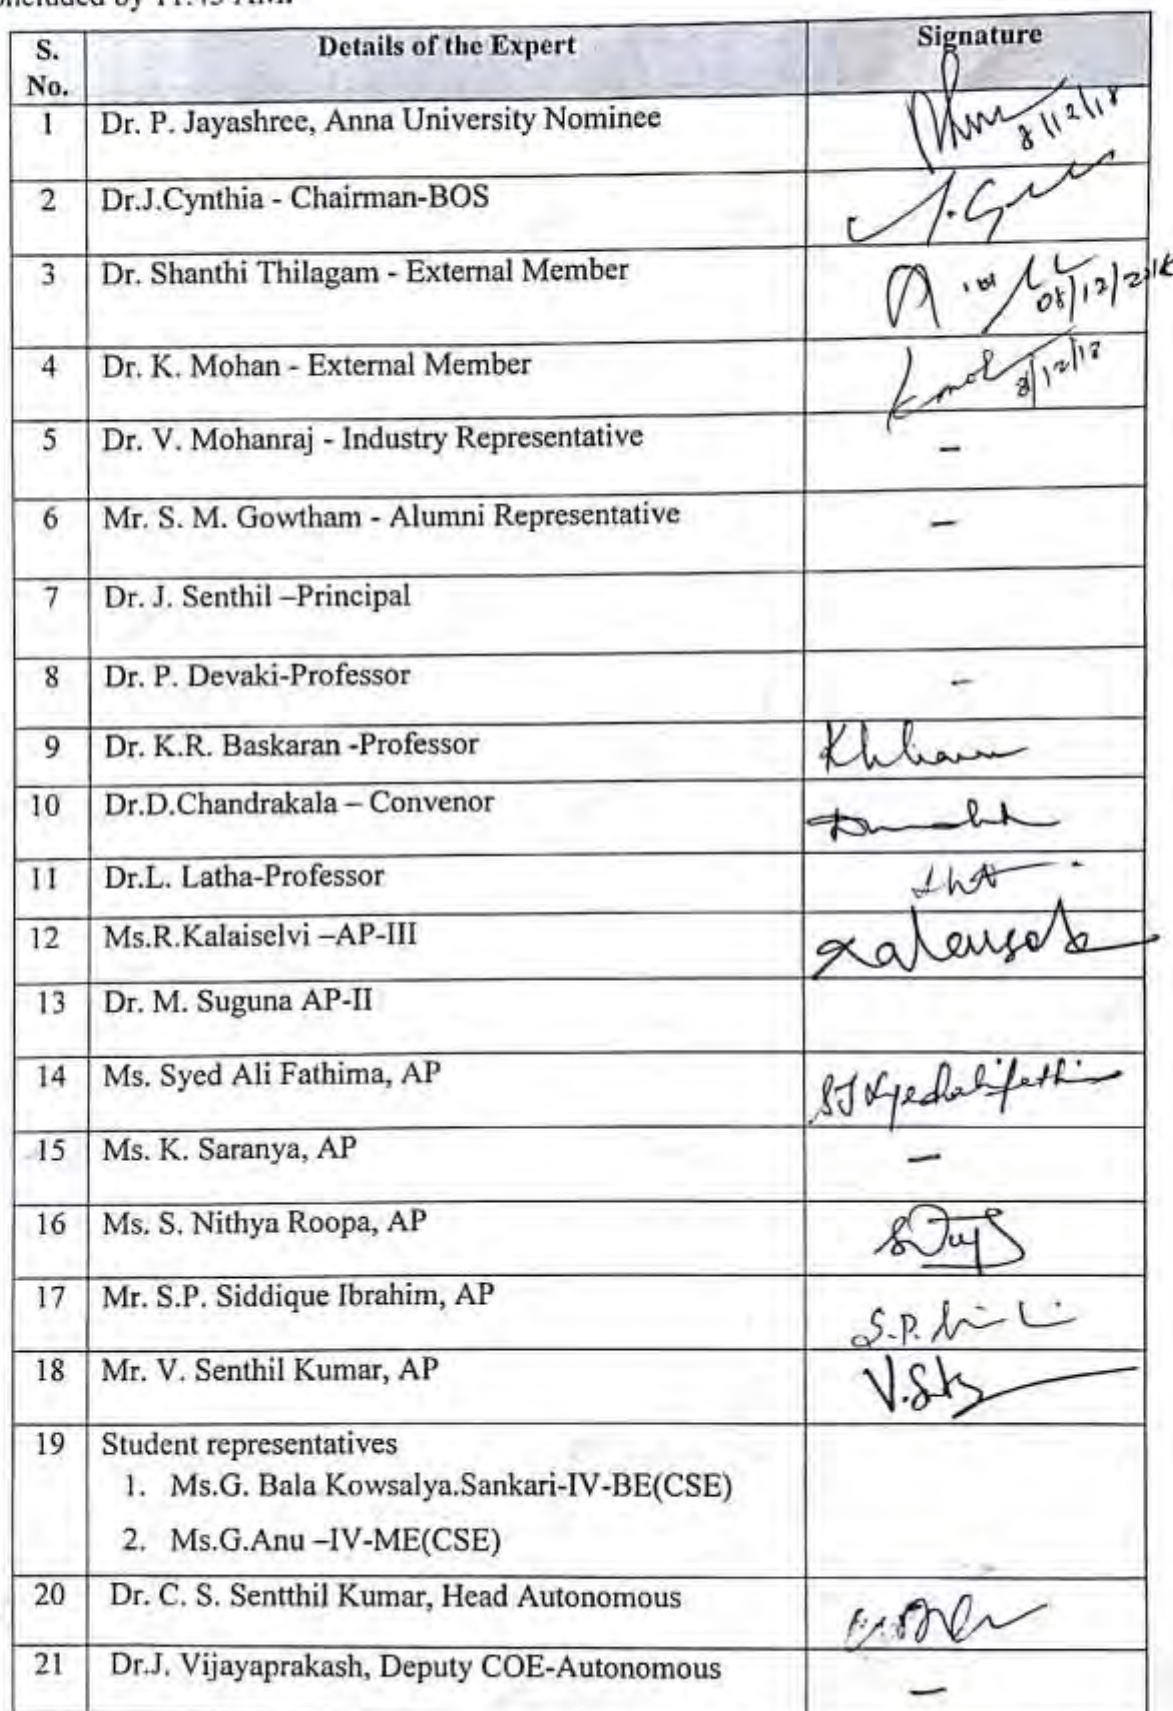 by 11:45 AM.
S. No. Details of the Expert Signature
1 Dr. P. Jayashree, Anna University Nominee 8/12/18
2 Dr.J.Cynthia - Chairman-BOS
3 Dr. Shanthi Thilagam - External Member 08/12/2018
4 Dr. K. Mohan - External Member 8/12/18
5 Dr. V. Mohanraj - Industry Representative –
6 Mr. S. M. Gowtham - Alumni Representative –
7 Dr. J. Senthil –Principal
8 Dr. P. Devaki-Professor –
9 Dr. K.R. Baskaran -Professor
10 Dr.D.Chandrakala – Convenor
11 Dr.L. Latha-Professor
12 Ms.R.Kalaiselvi –AP-III
13 Dr. M. Suguna AP-II
14 Ms. Syed Ali Fathima, AP
15 Ms. K. Saranya, AP –
16 Ms. S. Nithya Roopa, AP
17 Mr. S.P. Siddique Ibrahim, AP S.P.
18 Mr. V. Senthil Kumar, AP
19 Student representatives
1. Ms.G. Bala Kowsalya.Sankari-IV-BE(CSE)
2. Ms.G.Anu –IV-ME(CSE)
20 Dr. C. S. Sentthil Kumar, Head Autonomous
21 Dr.J. Vijayaprakash, Deputy COE-Autonomous –